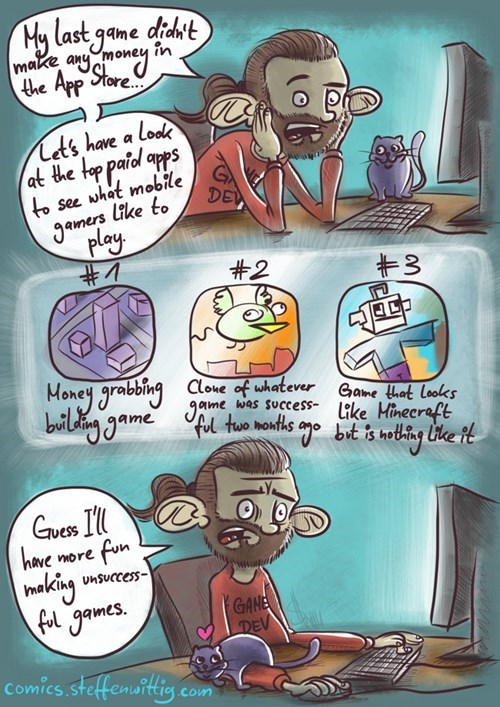 My last game didn't
make any money in
the App Store...
Let's have a look
at the top paid apps
to see what mobile
gamers like to
play.
GAME
DEV
#1
#2
#3
Money grabbing
building game
Clone of whatever
game was success-
ful two months ago
Game that looks
like Minecraft
but is nothing like it
Guess I'll
have more fun
making unsuccess-
ful games.
GAME
DEV
comics.steffenwittig.com